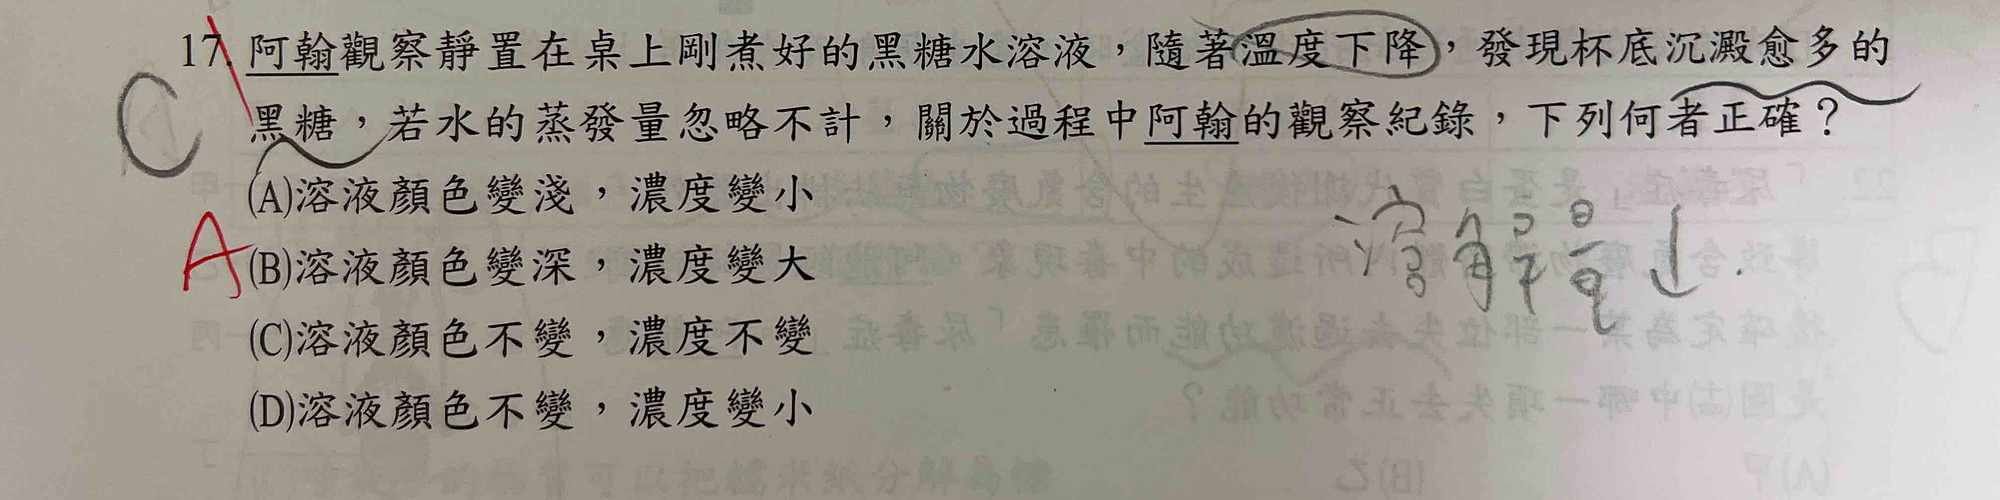 17. 阿翰觀察靜置在桌上剛煮好的黑糖水溶液，隨著溫度下降，發現杯底沉澱愈多的
C
黑糖，若水的蒸發量忽略不計，關於過程中阿翰的觀察紀錄，下列何者正確？
(A)溶液顏色變淺，濃度變小
溶解量↓.
A
(B)溶液顏色變深，濃度變大
(C)溶液顏色不變，濃度不變
(D)溶液顏色不變，濃度變小